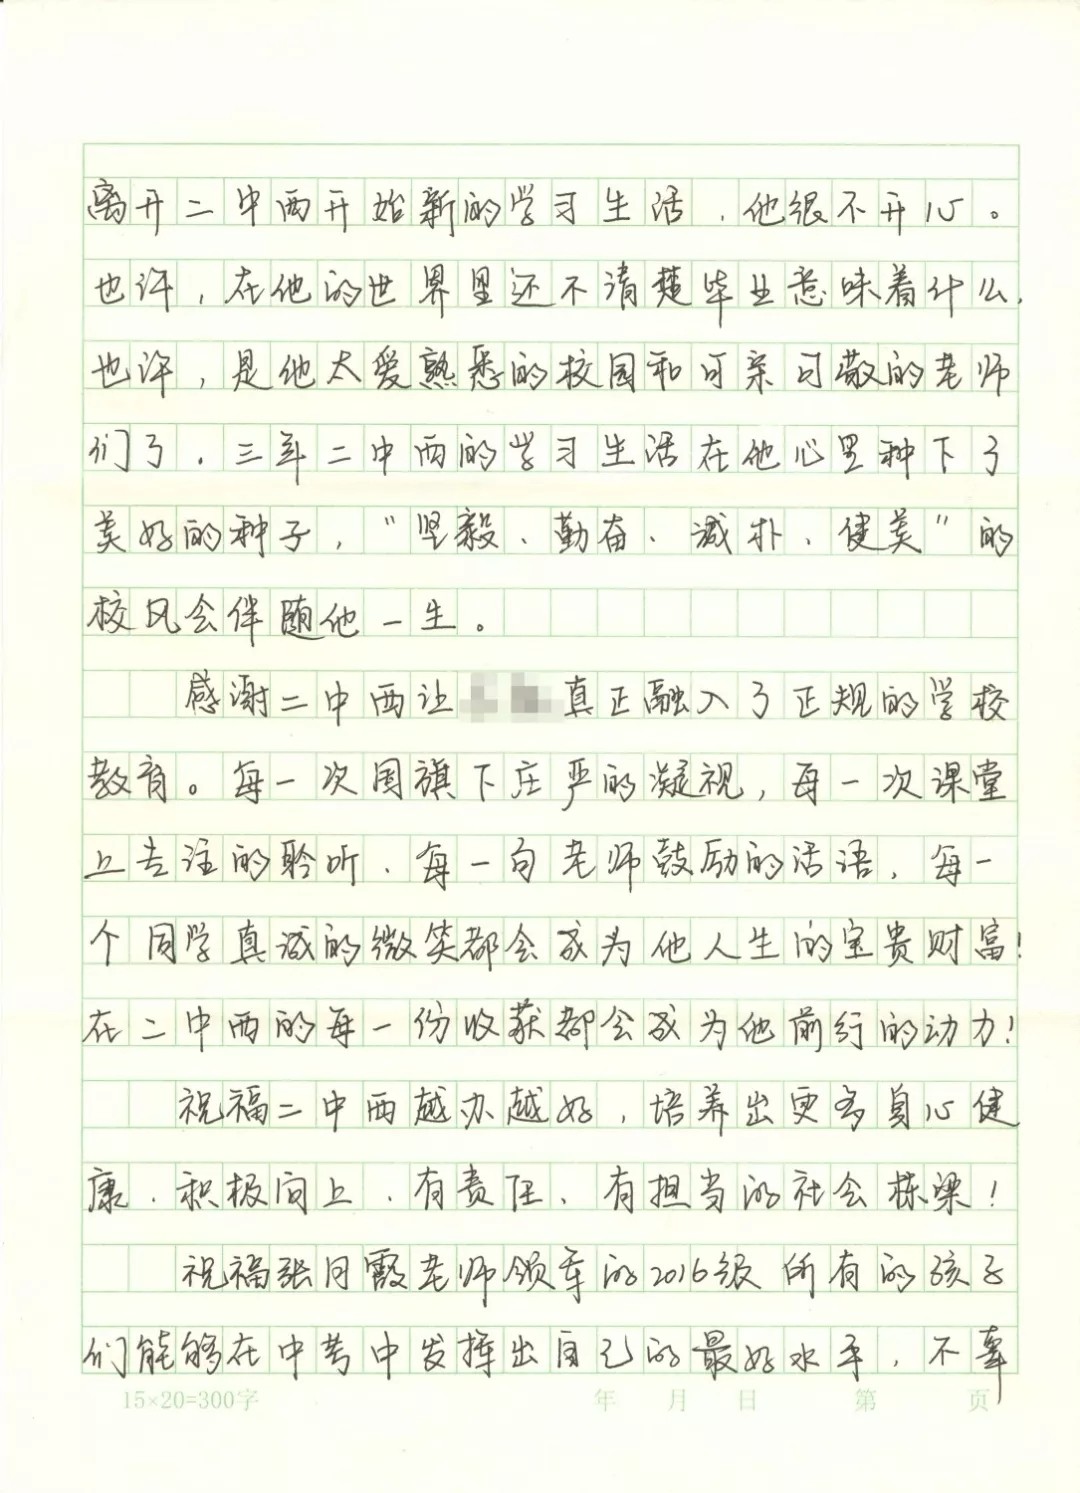 离开二中西开始新的学习生活，他很不开心。
也许，在他的世界里还不清楚毕业意味着什么，
也许，是他太爱熟悉的校园和可亲可敬的老师
们了．三年二中西的学习生活在他心里种下了
美好的种子，“坚毅、勤奋、诚朴、健美”的
校风会伴随他一生。
感谢二中西让真正融入了正规的学校
教育。每一次国旗下庄严的凝视，每一次课堂
上专注的聆听．每一句老师鼓励的话语，每一
个同学真诚的微笑都会成为他人生的宝贵财富！
在二中西的每一份收获都会成为他前行的动力！
祝福二中西越办越好，培养出更多身心健
康．积极向上．有责任、有担当的社会栋梁！
祝福张月霞老师领军的2016级所有的孩子
们能够在中考中发挥出自己的最好水平，不辜
15×20=300字 年 月 日 第 页